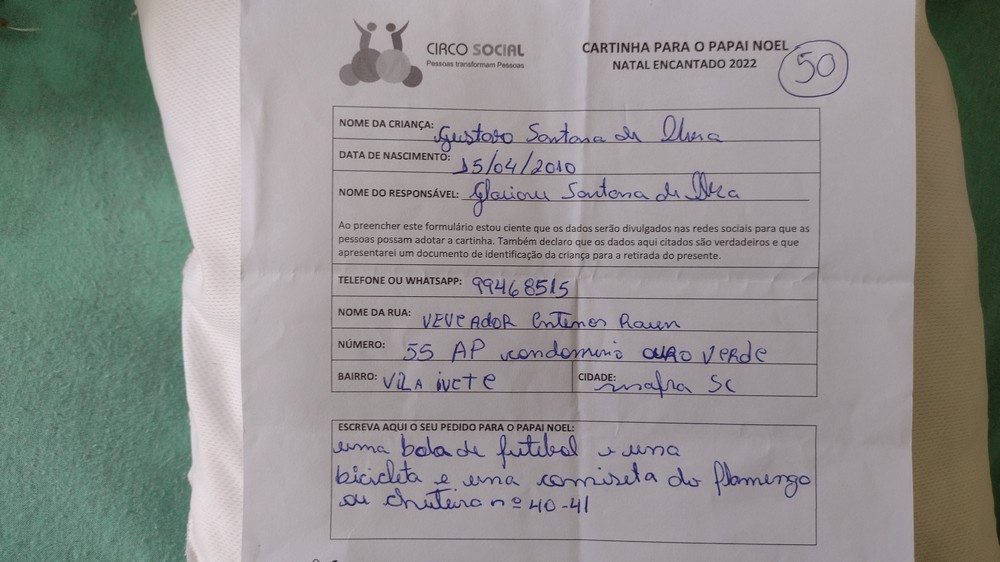 CIRCO SOCIAL
Pessoas transformam Pessoas
CARTINHA PARA O PAPAI NOEL
NATAL ENCANTADO 2022
50
NOME DA CRIANÇA: Gustavo Santana de
DATA DE NASCIMENTO: 15/04/2010
NOME DO RESPONSÁVEL: Santana de
Ao preencher este formulário estou ciente que os dados serão divulgados nas redes sociais para que as
pessoas possam adotar a cartinha. Também declaro que os dados aqui citados são verdadeiros e que
apresentarei um documento de identificação da criança para a retirada do presente.
TELEFONE OU WHATSAPP: 99468515
NOME DA RUA: VEVEADOR
NÚMERO: 55 AP condominio OURO VERDE
BAIRRO: VILA iVETE CIDADE: mafra SC
ESCREVA AQUI O SEU PEDIDO PARA O PAPAI NOEL:
uma bola de futebol e uma
bicicleta e uma camiseta do flamengo
ou chuteira nº 40-41